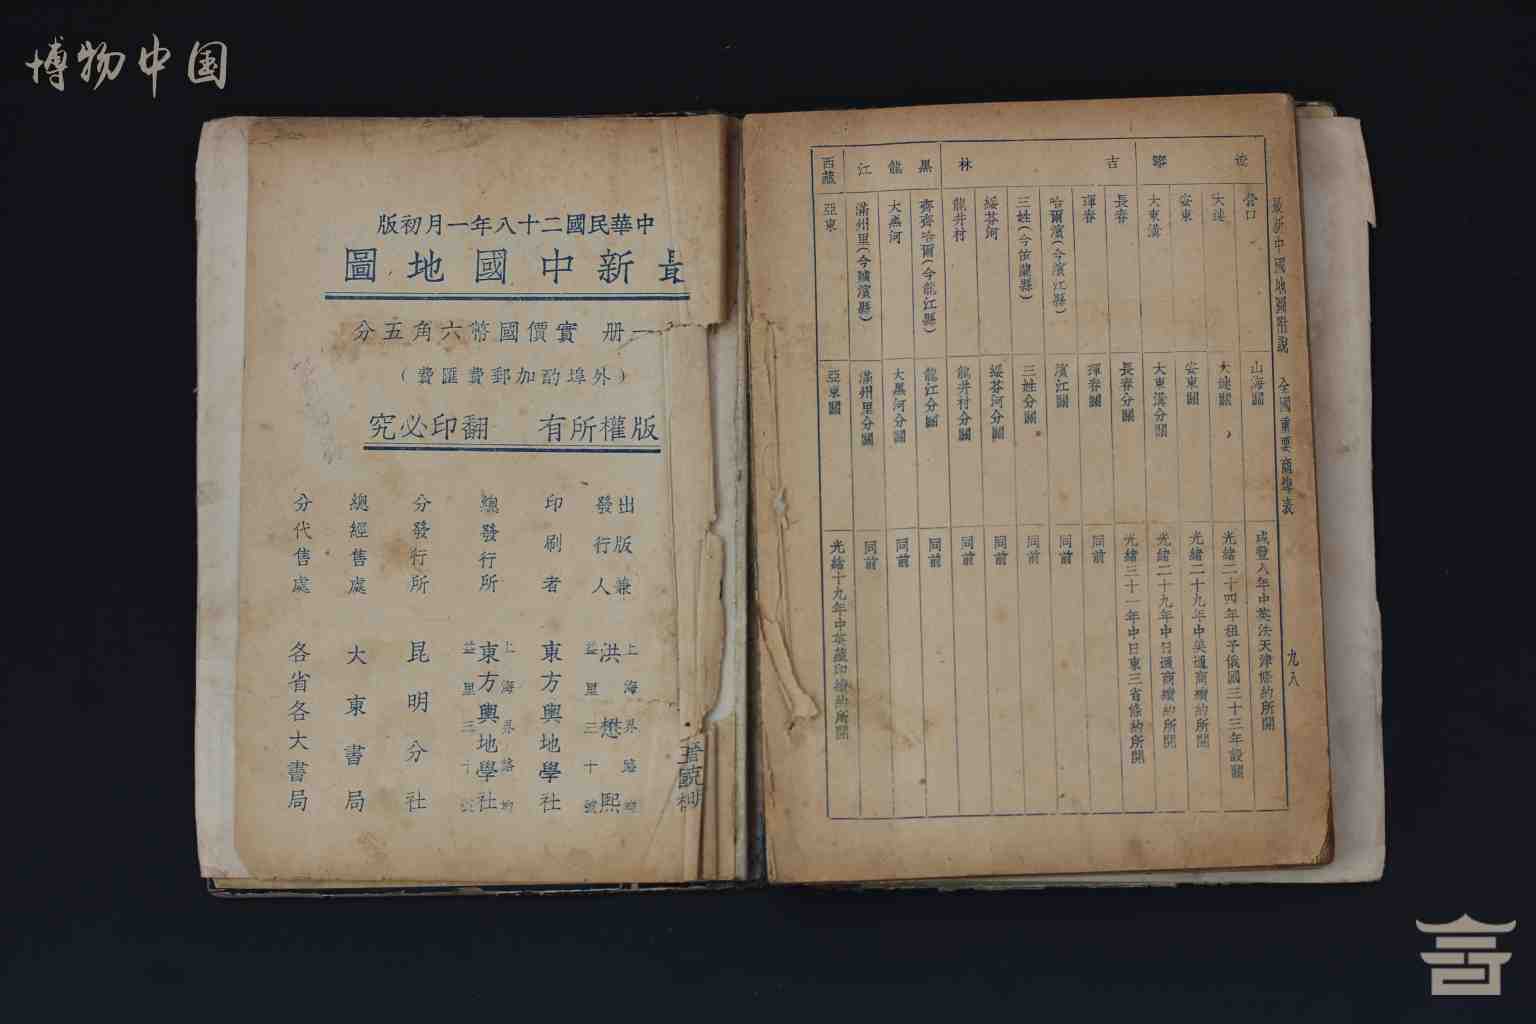 博物中国
中華民國二十八年一月初版
最新中國地圖
一册 實價國幣六角五分
（外埠酌加郵費匯費）
版權所有 翻印必究
出版兼
發行人 洪懋熙
印刷者 東方輿地學社
總發行所 東方輿地學社
分發行所 昆明分社
總經售處 大東書局
分代售處 各省各大書局
最新中國地圖附說 全國重要商埠表 九八
遼寧
營口 山海關 咸豐八年中英法天津條約所開
大連 大連關 光緒二十四年租予俄國三十三年設關
安東 安東關 光緒二十九年中美通商續約所開
大東溝 大東溝分關 光緒二十九年中日通商續約所開
吉林
長春 長春分關 光緒三十一年中日東三省條約所開
琿春 琿春關 同前
哈爾濱（今濱江縣） 濱江關 同前
三姓（今依蘭縣） 三姓分關 同前
綏芬河 綏芬河分關 同前
龍井村 龍井村分關 同前
黑龍江
齊齊哈爾（今龍江縣） 龍江分關 同前
大黑河 大黑河分關 同前
滿州里（今臚濱縣） 滿州里分關 同前
西藏
亞東 亞東關 光緒十九年中英藏印續約所開